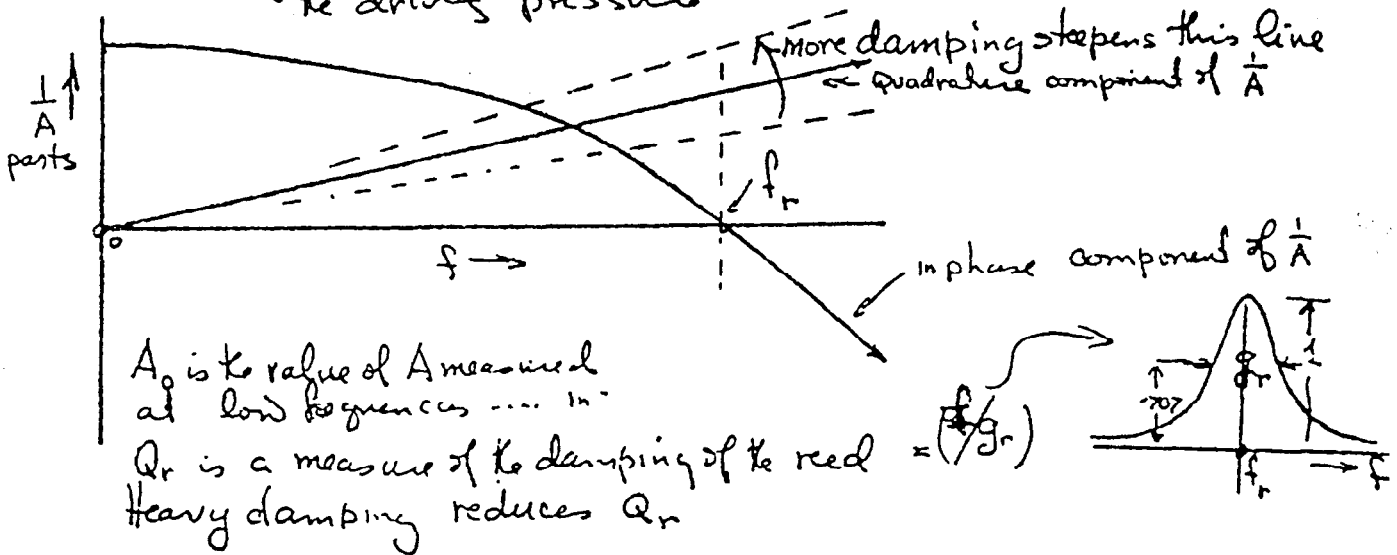 the driving pressure
more damping steepens this line
∝ Quadrature component of 1/A
1/A
parts
f_r
0
f →
in phase component of 1/A
A_0 is the value of A measured
at low frequencies .... in
Q_r is a measure of the damping of the reed = (f/g_r)
Heavy damping reduces Q_r
g_r
1
.707
f_r
→ f